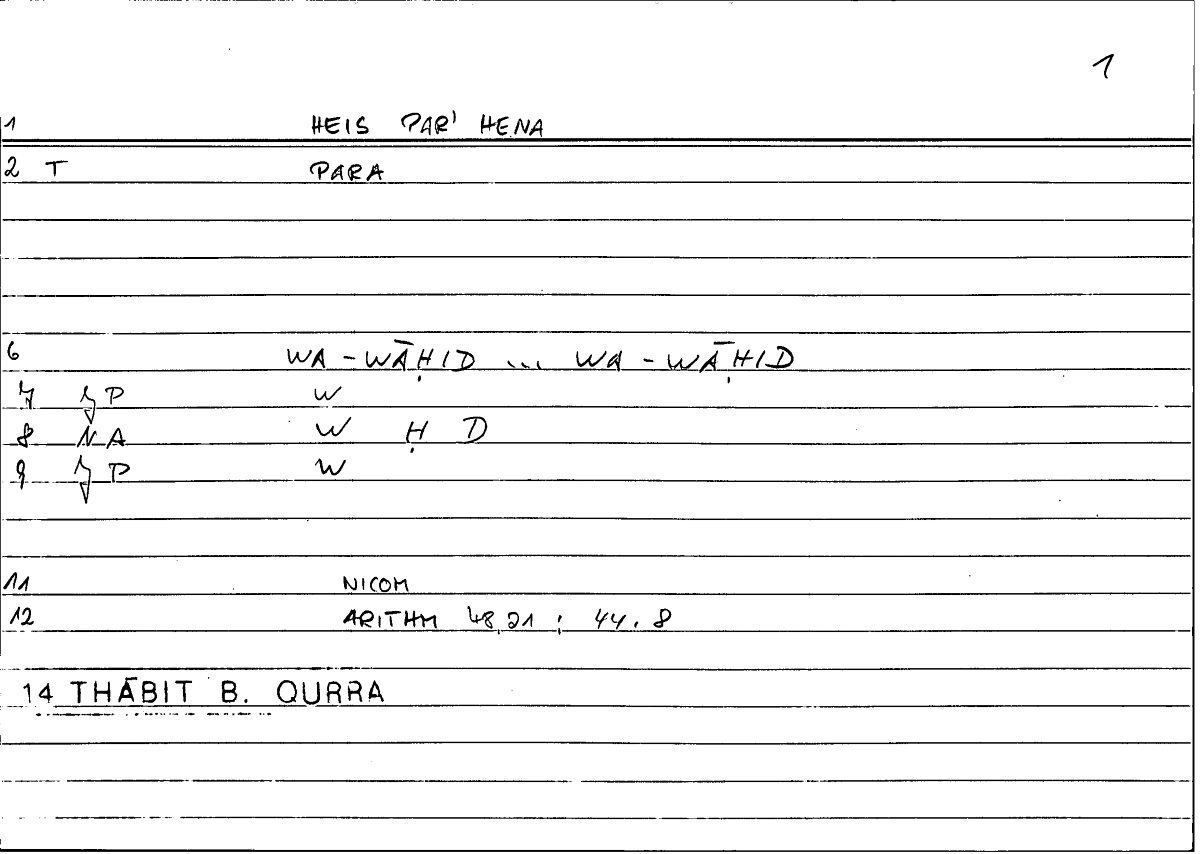 1
1 HEIS PAR' HENA
2 T PARA
6 WA-WĀḤID ... WA-WĀḤID
7 P W
8 NA W Ḥ D
9 P W
11 NICOM
12 ARITHM 48,21 ; 44.8
14 THĀBIT B. QURRA